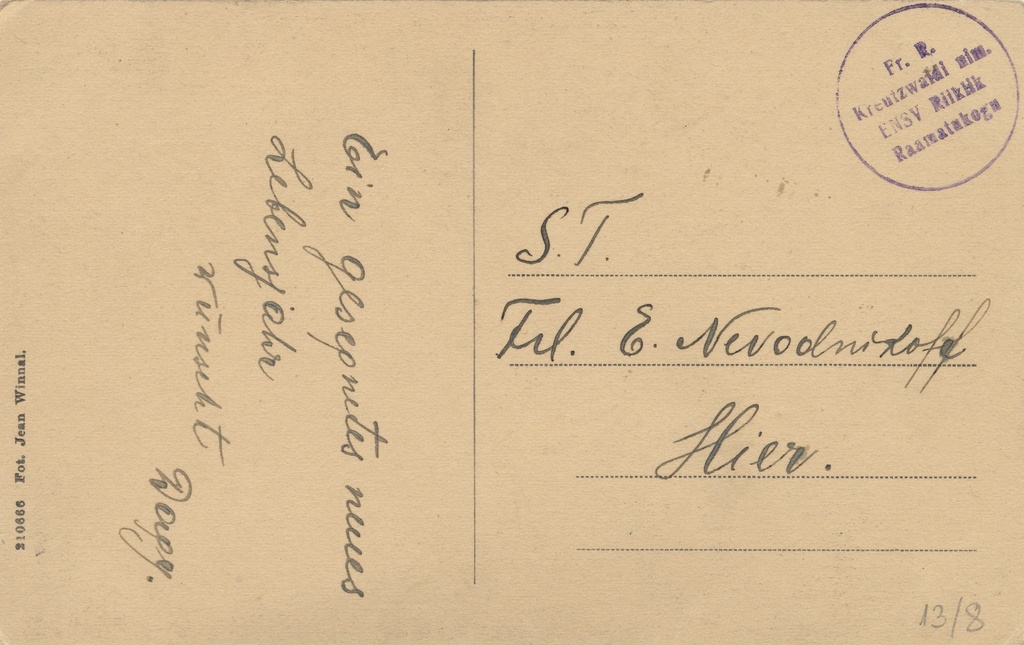 Ein gesegnetes neues
Lebensjahr
wünscht
S. T.
Frl. E. Nevodnikoff
Hier.
Fr. R.
Kreutzwaldi nim.
ENSV RiikHk
Raamatukogu
13/8
210666 Fot. Jean Winnal.